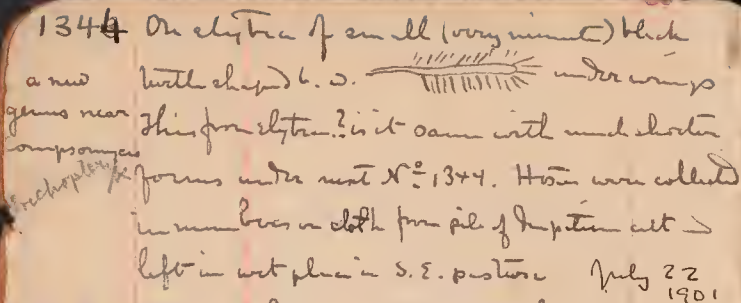 1344 On elytra of small (very minute) black
a new
beetle shaped b. w. under wings
genus near
This from elytra. ? is it same with much shorter
Compsomyces
forms under next Nº 1344. Hosts were collected
in numbers on cloth from pile of cut
left in wet place in S. E. pasture July 22
1901